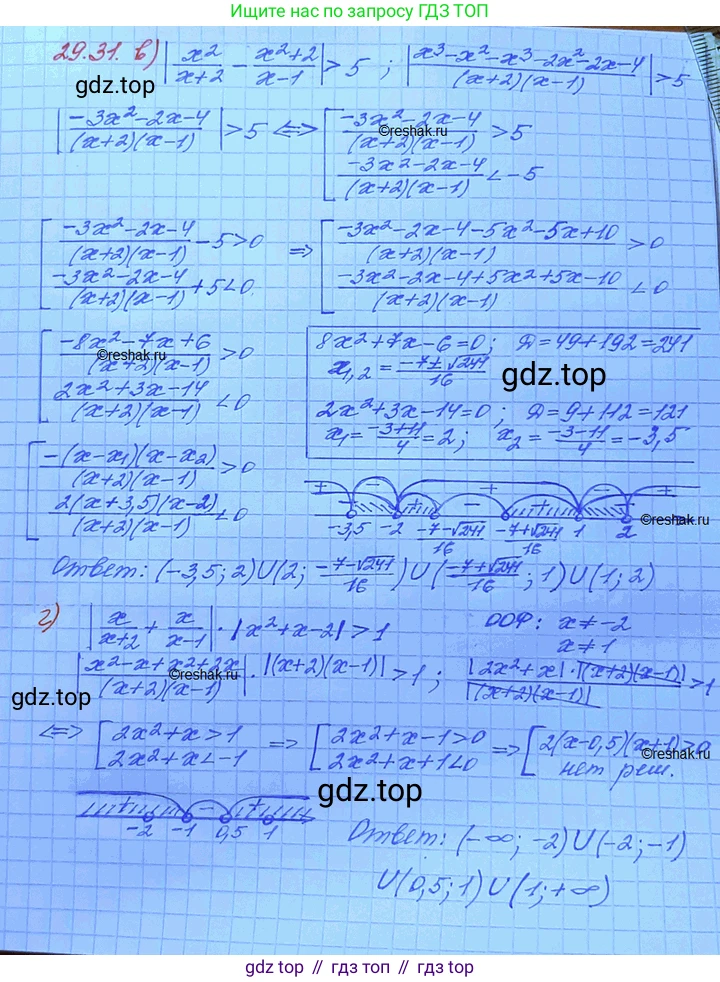 Ищите нас по запросу ГДЗ ТОП
29.31. в) |x²/(x+2) − (x²+2)/(x−1)| > 5 ; |(x³−x²−x³−2x²−2x−4)/((x+2)(x−1))| > 5
gdz.top
|(−3x²−2x−4)/((x+2)(x−1))| > 5 <=> [ (−3x²−2x−4)/((x+2)(x−1)) > 5
(−3x²−2x−4)/((x+2)(x−1)) < −5
©reshak.ru
gdz.top
[ (−3x²−2x−4)/((x+2)(x−1)) − 5 > 0 => [ (−3x²−2x−4−5x²−5x+10)/((x+2)(x−1)) > 0
(−3x²−2x−4)/((x+2)(x−1)) + 5 < 0 (−3x²−2x−4+5x²+5x−10)/((x+2)(x−1)) < 0
[ (−8x²−7x+6)/((x+2)(x−1)) > 0
(2x²+3x−14)/((x+2)(x−1)) < 0
©reshak.ru
8x²+7x−6=0; Д=49+192=241
x₁,₂ = (−7±√241)/16
gdz.top
2x²+3x−14=0; Д=9+112=121
x₁ = (−3+11)/4 = 2; x₂ = (−3−11)/4 = −3,5
[ −(x−x₁)(x−x₂)/((x+2)(x−1)) > 0
2(x+3,5)(x−2)/((x+2)(x−1)) < 0
+ − + − +
−3,5 −2 (−7−√241)/16 (−7+√241)/16 1 2
©reshak.ru
Ответ: (−3,5; 2)∪(2; (−7−√241)/16)∪((−7+√241)/16; 1)∪(1; 2)
г) |x/(x+2) + x/(x−1)| · |x²+x−2| > 1 ООФ: x≠−2
x≠1
|(x²−x+x²+2x)/((x+2)(x−1))| · |(x+2)(x−1)| > 1 ; |2x²+x|·|(x+2)(x−1)|/|(x+2)(x−1)| > 1
gdz.top
<=> [ 2x²+x > 1 => [ 2x²+x−1 > 0 => [ 2(x−0,5)(x+1) > 0
2x²+x < −1 2x²+x+1 < 0 нет реш.
©reshak.ru
gdz.top
+ − +
−2 −1 0,5 1
Ответ: (−∞; −2)∪(−2; −1)
∪(0,5; 1)∪(1; +∞)
gdz.top // гдз топ // gdz.top